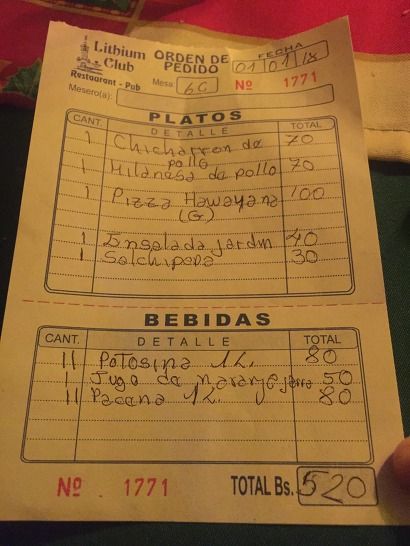 Lithium Club
Restaurant - Pub
ORDEN DE PEDIDO
FECHA
01/01/18
Mesa 6C
Nº 1771
Mesero(a):
PLATOS
CANT. DETALLE TOTAL
1 Chicharron de pollo 70
1 Milanesa de pollo 70
1 Pizza Hawayana (G) 100
1 Ensalada jardin 40
1 Salchipapa 30
BEBIDAS
CANT. DETALLE TOTAL
11 Potosina 1L. 80
1 Jugo de naranja jarra 50
11 Pacena 1L. 80
Nº 1771 TOTAL Bs. 520